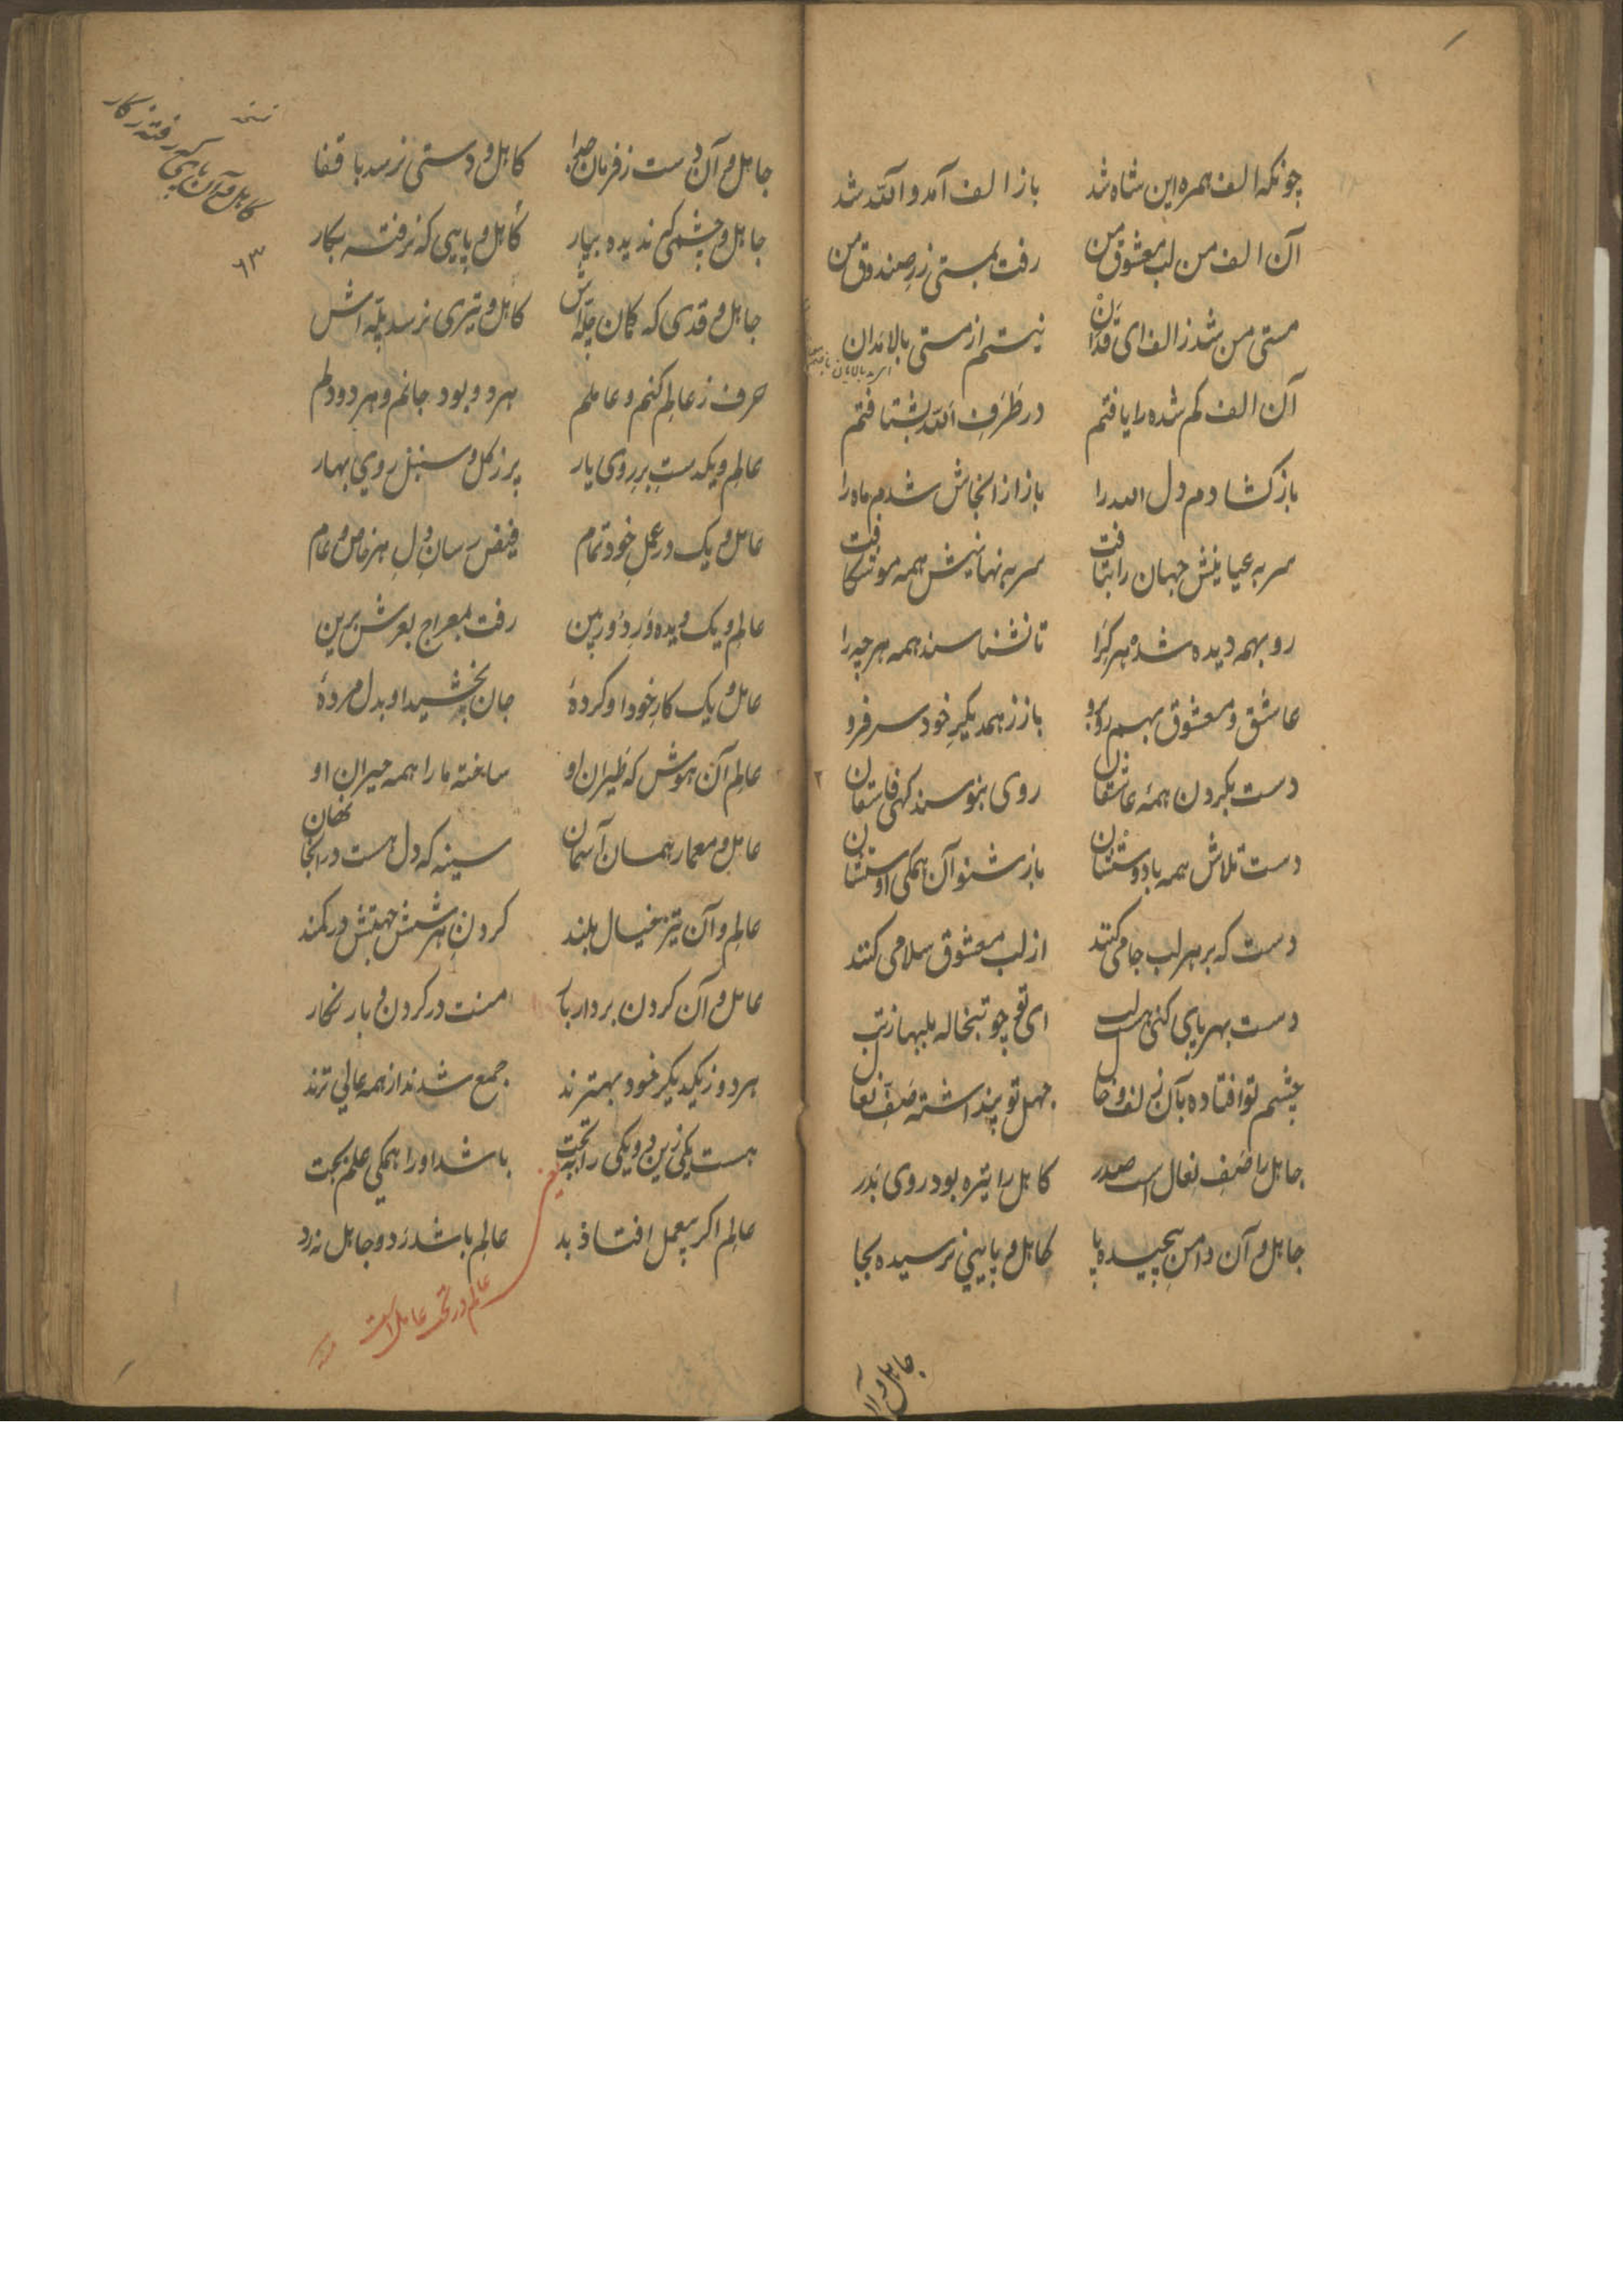 چونکه الف همره این شاه شد باز الف آمد و الله شد
آن الف من لب معشوق من رفت بمستی زر صندوق من
مستی من شد ز الف ای قدان نیستم از مستی بالا مدان
آن الف کم شده را یافتم در طرف الله بشتافتم
باز کشادم دل الله را باز از انجاش شدم ماه را
سر به عیانیش جهان را بتافت سر به نهانیش همه مو شکافت
رو بهمه دیده شده هر کرا تا نشناسند همه هر چه را
عاشق و معشوق بهم روبرو باز ز همدیکر خود سر فرو
دست بکردن همهٔ عاشقان روی بنوسند کهی فاسقان
دست تلاش همه با دوستان باز شنو آن همکی اوستان
دست که بر هر لب جامی کنند از لب معشوق سلامی کنند
دست بهر پای کنی هر لب ای تو چو تبخاله بلبها ز تب
چشم تو افتاده بآن زلف و خال جهل تو پنداشته صف نعال
جاهل را صف نعال است صدر کاهل را تیره بود روی بدر
جاهل و آن دامن پیچیده پا کاهل و پایینی نرسیده بجا
جاهل و آن
جاهل و آن دست ز فرمان جدا کاهل و دستی نرسد با قفا
جاهل و چشمی که ندیده بیار کاهل و پایی که نرفته بکار
جاهل و قدی که کمان چله اش کاهل و تیری نرسد پله اش
حرف ز عالم کنم و عاملم هر دو بود جانم و هر دو دلم
عالم و یکدست برِ روی یار پر ز کل و سنبل روی بهار
عامل و یک در عمل خود تمام فیض رسان دل هر خاص و عام
عالم و یک دیده ور دور بین رفت بمعراج بعرش برین
عامل و یک کار خود او کردهٔ جان بخشید او بدل مردهٔ
عالم آن هوش که طیران او ساخته ما را همه حیران او
عامل و معمار همان آسمان سینه که دل هست در انجا نهان
عالم و آن تیز خیال بلند کردن هر شش جهتش در کمند
عامل و آن کردن بردار بار منت در کردن و بار نکار
هر دو ز یکدیکر خود بهترند جمع شدند از همه عالی ترند
هست یکی زین دو یکی را بتحت باشد او را همکی علم بخت
عالم اکر بیعمل افتاد بد عالم باشد زد و جاهل نزد
کاهل و آن پای که رفته ز کار
۶۳
یعنی عالم در تحت عامل است
منه